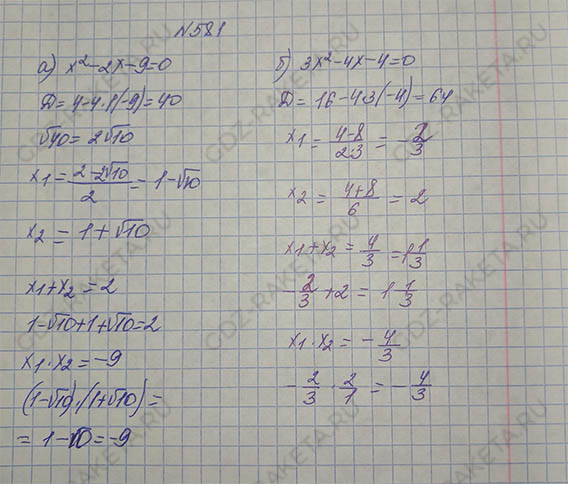 №581
а) x²-2x-9=0
D=4-4·1(-9)=40
√40=2√10
x₁=(2-2√10)/2=1-√10
x₂=1+√10
x₁+x₂=2
1-√10+1+√10=2
x₁·x₂=-9
(1-√10)·(1+√10)=
=1-10=-9
б) 3x²-4x-4=0
D=16-4·3(-4)=64
x₁=(4-8)/(2·3)=-2/3
x₂=(4+8)/6=2
x₁+x₂=4/3=1 1/3
-2/3+2=1 1/3
x₁·x₂=-4/3
-2/3·2/1=-4/3
GDZ-RAKETA.RU